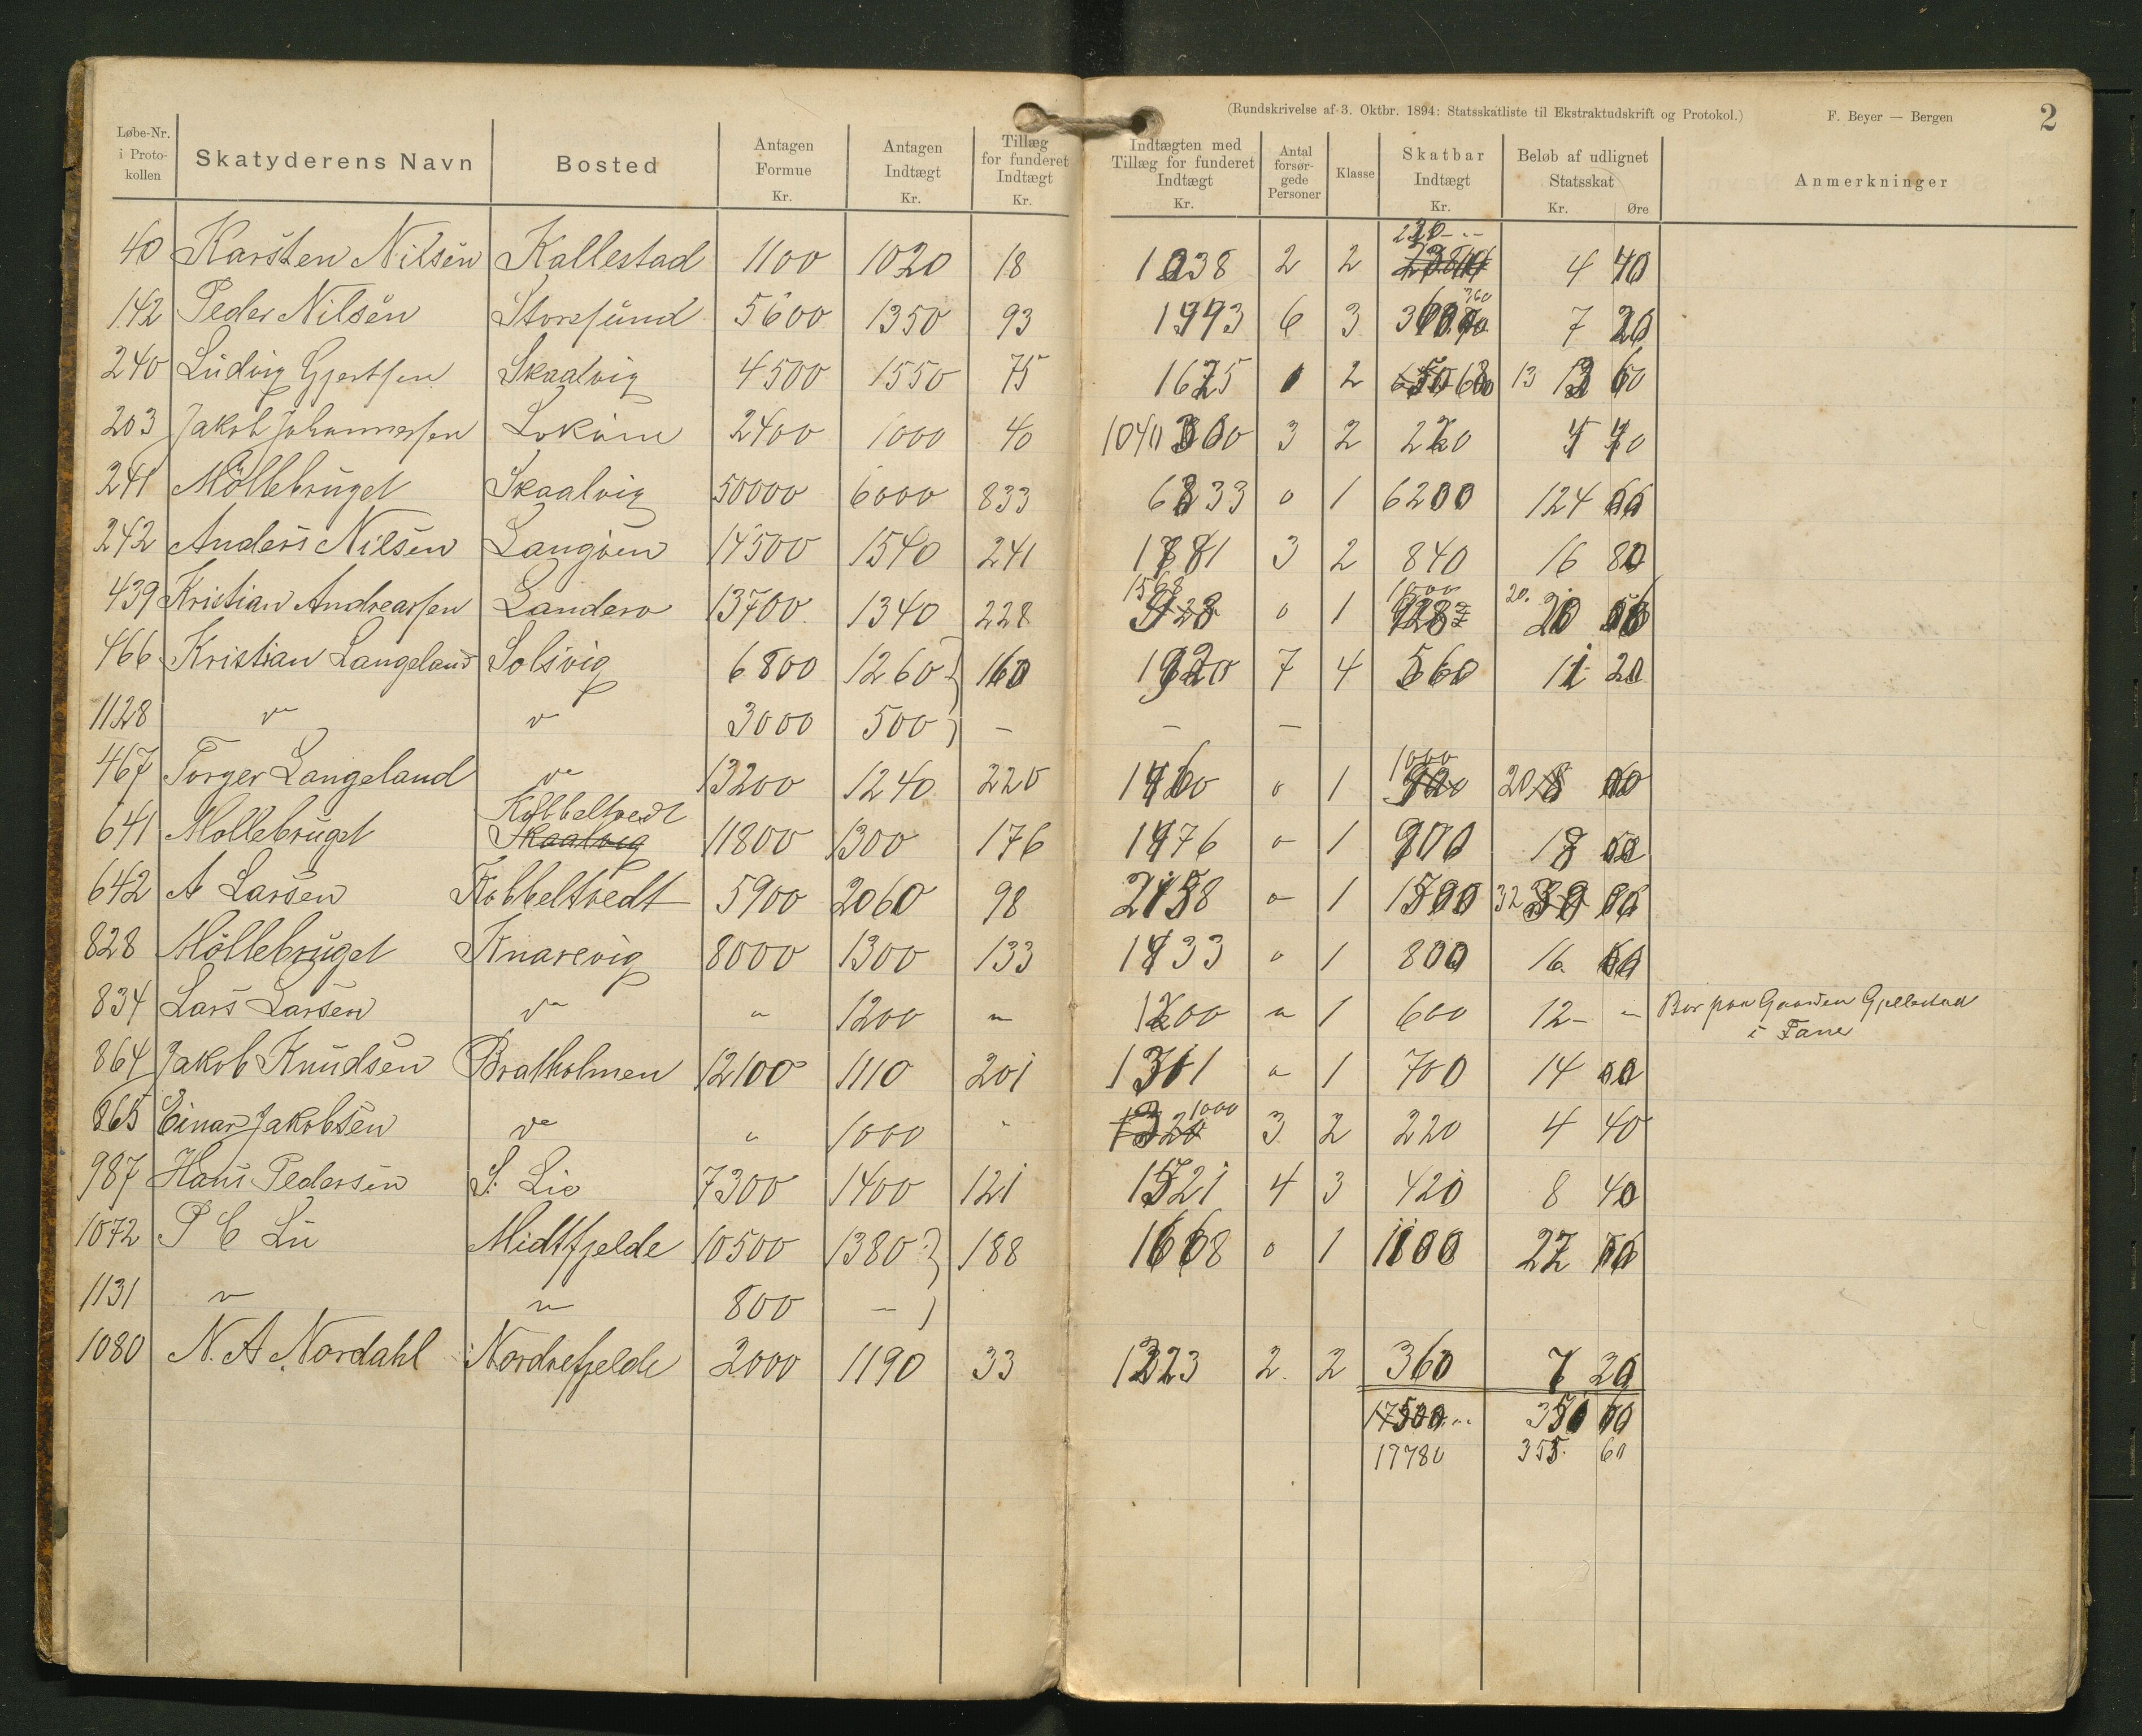 (Rundskrivelse af 3. Oktbr. 1894: Statsskatliste til Ekstraktudskrift og Protokol.) F. Beyer — Bergen 2
Løbe-Nr. i Protokollen Skatyderens Navn Bosted Antagen Formue Kr. Antagen Indtægt Kr. Tillæg for funderet Indtægt Kr. Indtægten med Tillæg for funderet Indtægt Kr. Antal forsørgede Personer Klasse Skatbar Indtægt Kr. Beløb af udlignet Statsskat Kr. Øre Anmerkninger
40 Karsten Nilsen Kallestad 1100 1020 18 1038 2 2 220 4 40
142 Peder Nilsen Storesund 5600 1350 93 6 3 360 7 20
240 Ludvig Gjertsen Skaalvig 4500 1550 75 1625 2 13 60
203 Jakob Johannessen Lokøen 2400 1000 40 1040 3 2 220 4 40
241 Möllebruget Skaalvig 50000 6000 833 6833 0 1 6200 124
242 Anders Nilsen Langøen 14500 1540 241 1781 3 2 840 16 80
439 Kristian Andreassen Landero 13700 1340 228 1568 0 1 1000 20.
466 Kristian Langeland Solsvig 6800 1260 160 1920 7 4 560 11 20
1128 " " 3000 500 – – –
467 Torger Langeland " 13200 1240 220 1460 0 1 1000 20
641 Mollebruget Kobbeltvedt Skaalvig 11800 1300 176 1476 0 1 900 18
642 A Larsen Kobbeltvedt 5900 2060 98 2158 0 1 32
828 Möllebruget Knarevig 8000 1300 133 1433 0 1 800 16
834 Lars Larsen " " 1200 " 1200 " 1 600 12 – " Bor paa Gaarden Gjellestad
i Fane
864 Jakob Knudsen Bratholmen 12100 1110 201 1311 " 1 700 14
865 Einar Jakobsen " " 1000 " 1000 3 2 220 4 40
987 Hans Pedersen S. Lie 7300 1400 121 1521 4 3 420 8 40
1072 P C Lu Midtfjelde 10500 1380 188 0 1 1100 22
1131 " " 800 –
1080 N. A. Nordahl Nordrefjelde 2000 1190 33 1223 2 2 360 7 20
17500 350
17780 355. 60